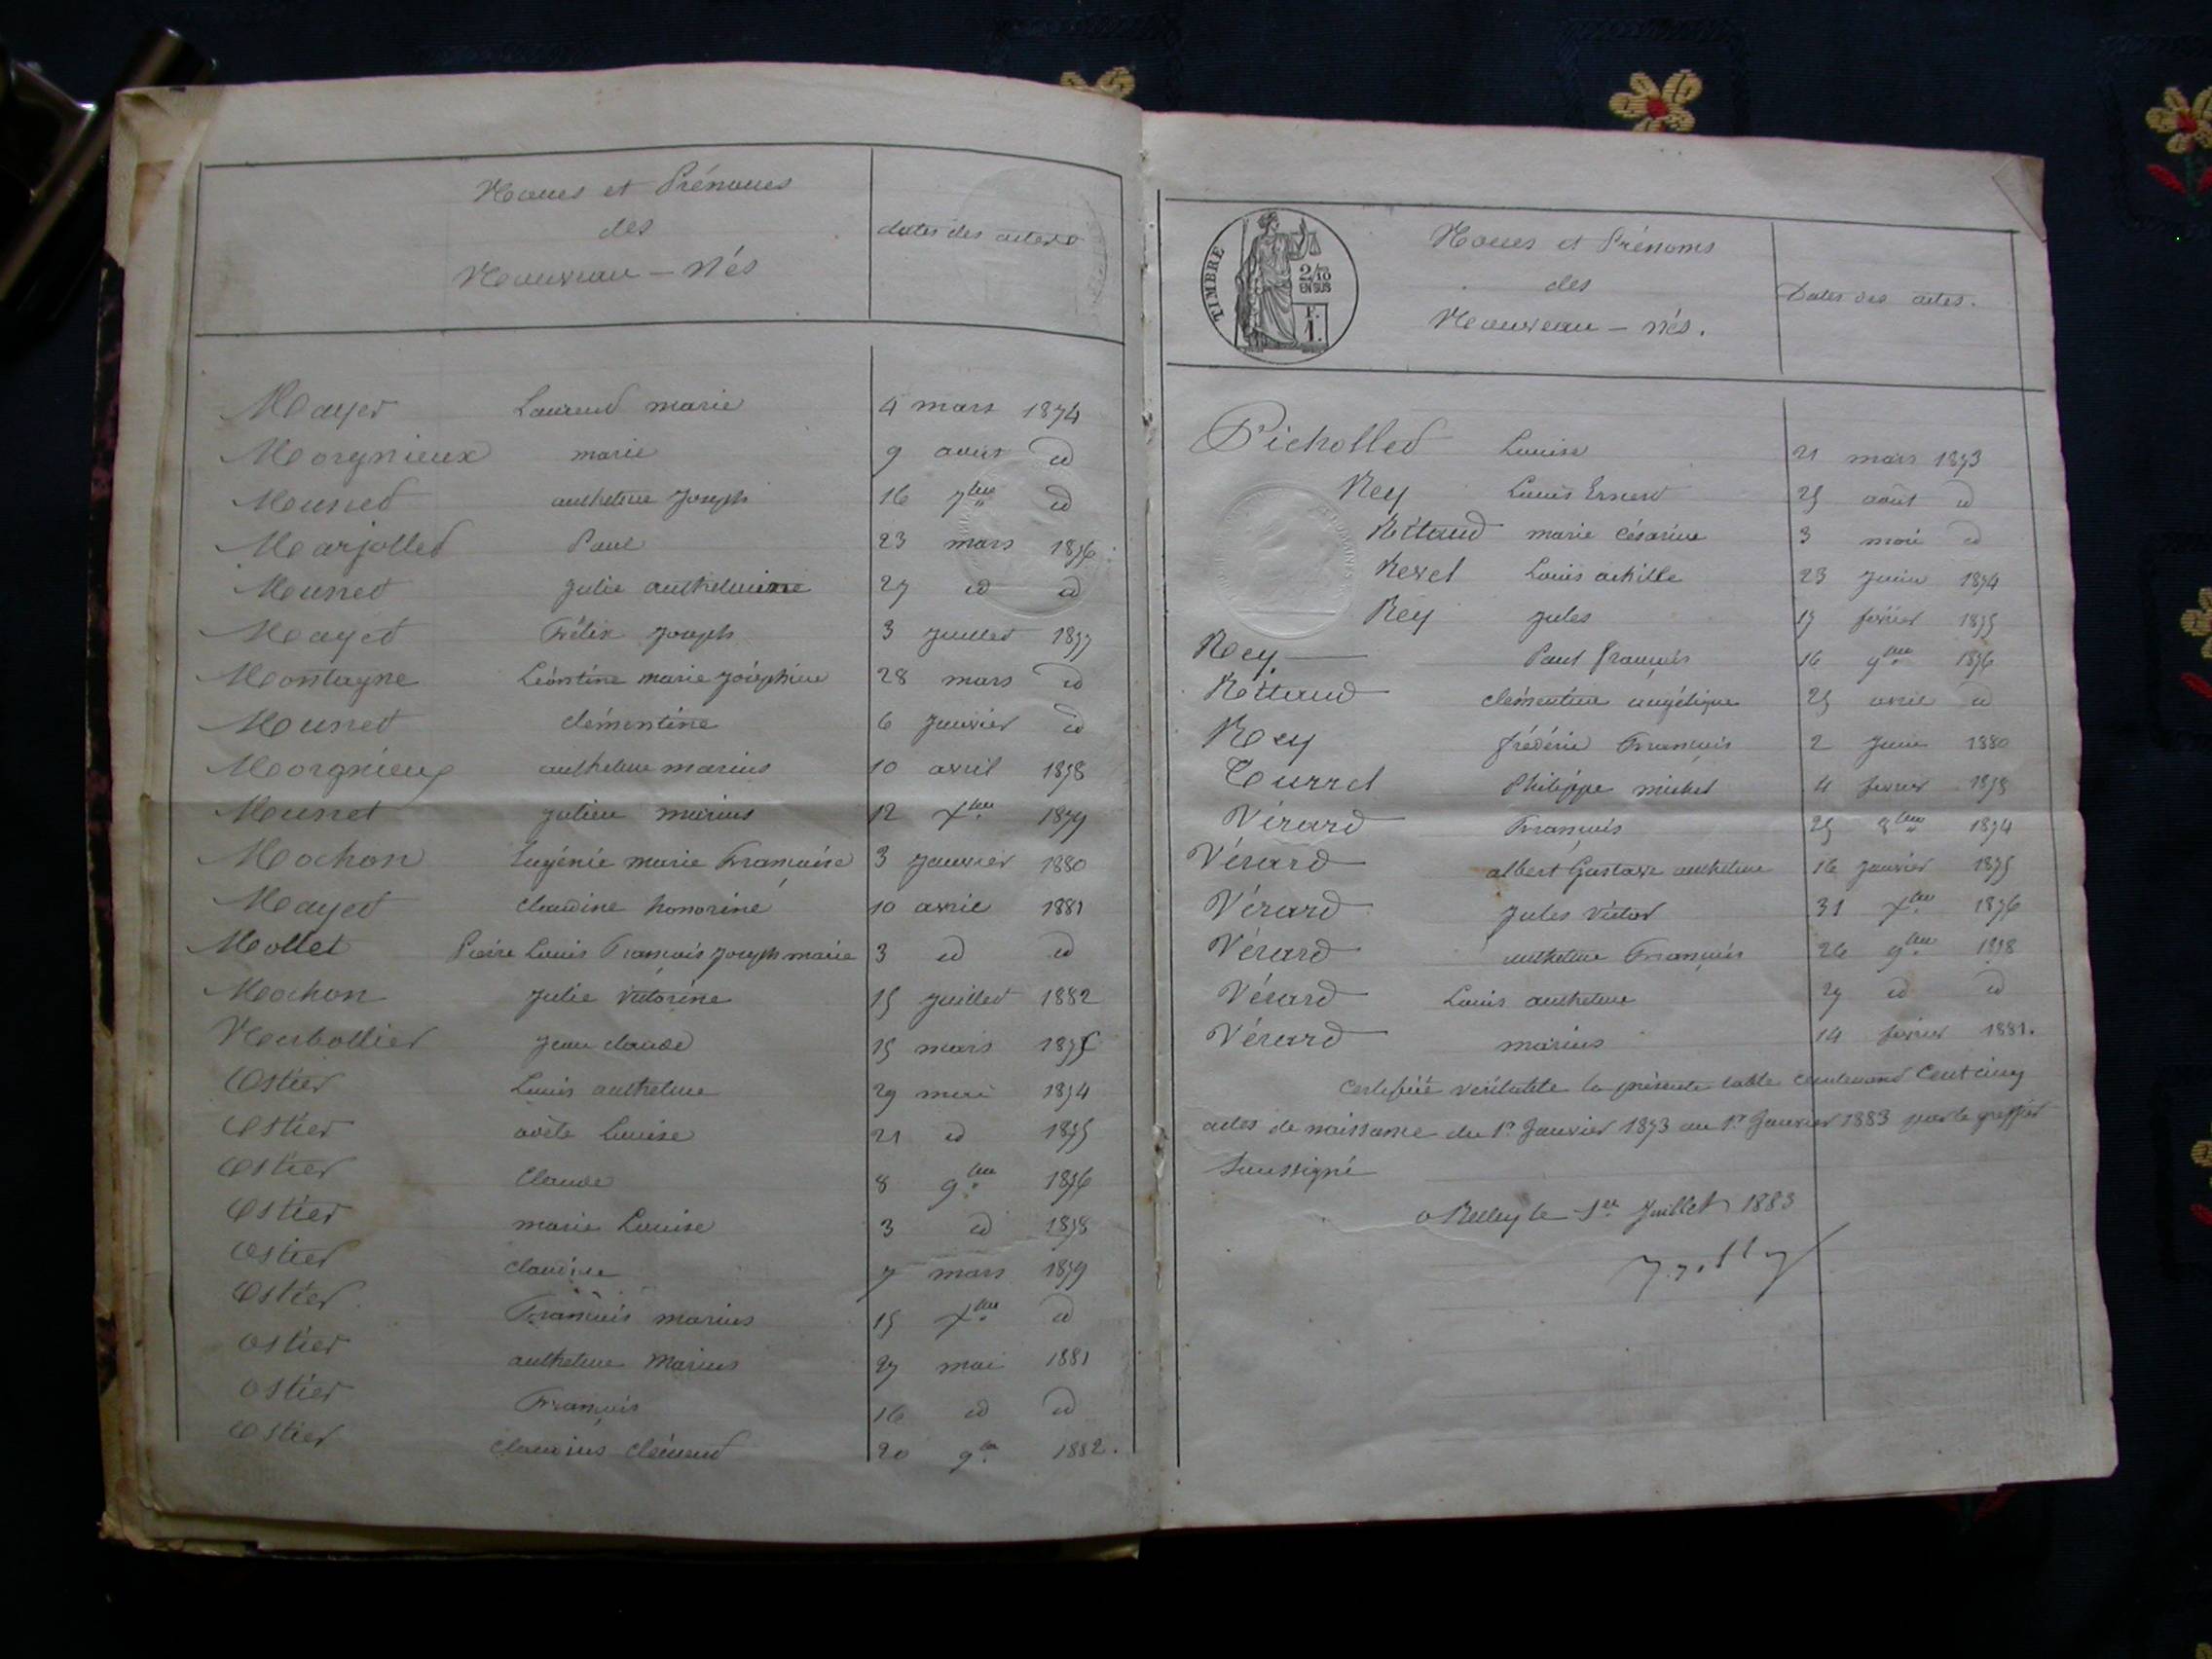 Noms et Prénoms
des
Nouveau-Nés
dates des actes
Mayet Laurend marie 4 mars 1874
Morgnieux marie 9 août id
Meunet anthelme Joseph 16 7bre id
Marjolled Paul 23 mars 1876
Meunet Julie anthelmine 27 id id
Mayet Félix Joseph 3 Juillet 1877
Montagne Léontine marie Joséphine 28 mars id
Meunet clémentine 6 Janvier id
Morgnieux anthelme marius 10 avril 1878
Meunet Julien marius 12 Xbre 1879
Mochon Eugénie marie Françoise 3 Janvier 1880
Mayet claudine honorine 10 avril 1881
Mollet Pierre Louis François Joseph marie 3 id id
Mochon Julie Victorine 15 Juillet 1882
Jean claude 15 mars
Ostier Louis anthelme 29 mai 1874
Ostier Louise 21 id 1875
Ostier Claude 8 9bre 1876
Ostier marie Louise 3 id 1878
Ostier claudine 7 mars 1879
Ostier François marius 15 Xbre id
Ostier anthelme Marius 27 mai 1881
Ostier François 16 id id
Ostier claudius clémend 20 9bre 1882.
TIMBRE
2/10
EN SUS
F.
1.
Noms et Prénoms
des
Nouveau-nés.
Dates des actes.
Picholled Louise 21 mars 1873
Rey Louis Ernest 25 août id
Rettaud marie césarine 3 mai id
Revel Louis achille 23 Juin 1874
Rey Jules 17 février 1875
Rey Paul François 16 9bre 1876
Rettaud clémentine angélique 25 avril id
Rey frédéric François 2 Juin 1880
Turrel Philippe michel 4 février 1878
Vérard François 25 8bre 1874
Vérard albert Gustave anthelme 16 Janvier 1875
Vérard Jules Victor 31 Xbre 1876
Vérard anthelme François 26 9bre 1878
Vérard Louis anthelme 29 id id
Vérard marius 14 février 1881.
Certifiée véritable la présente table contenand Cent cinq
actes de naissance du 1er Janvier 1873 au 1er Janvier 1883 par le greffier
Soussigné
a Belley le 1er Juillet 1883